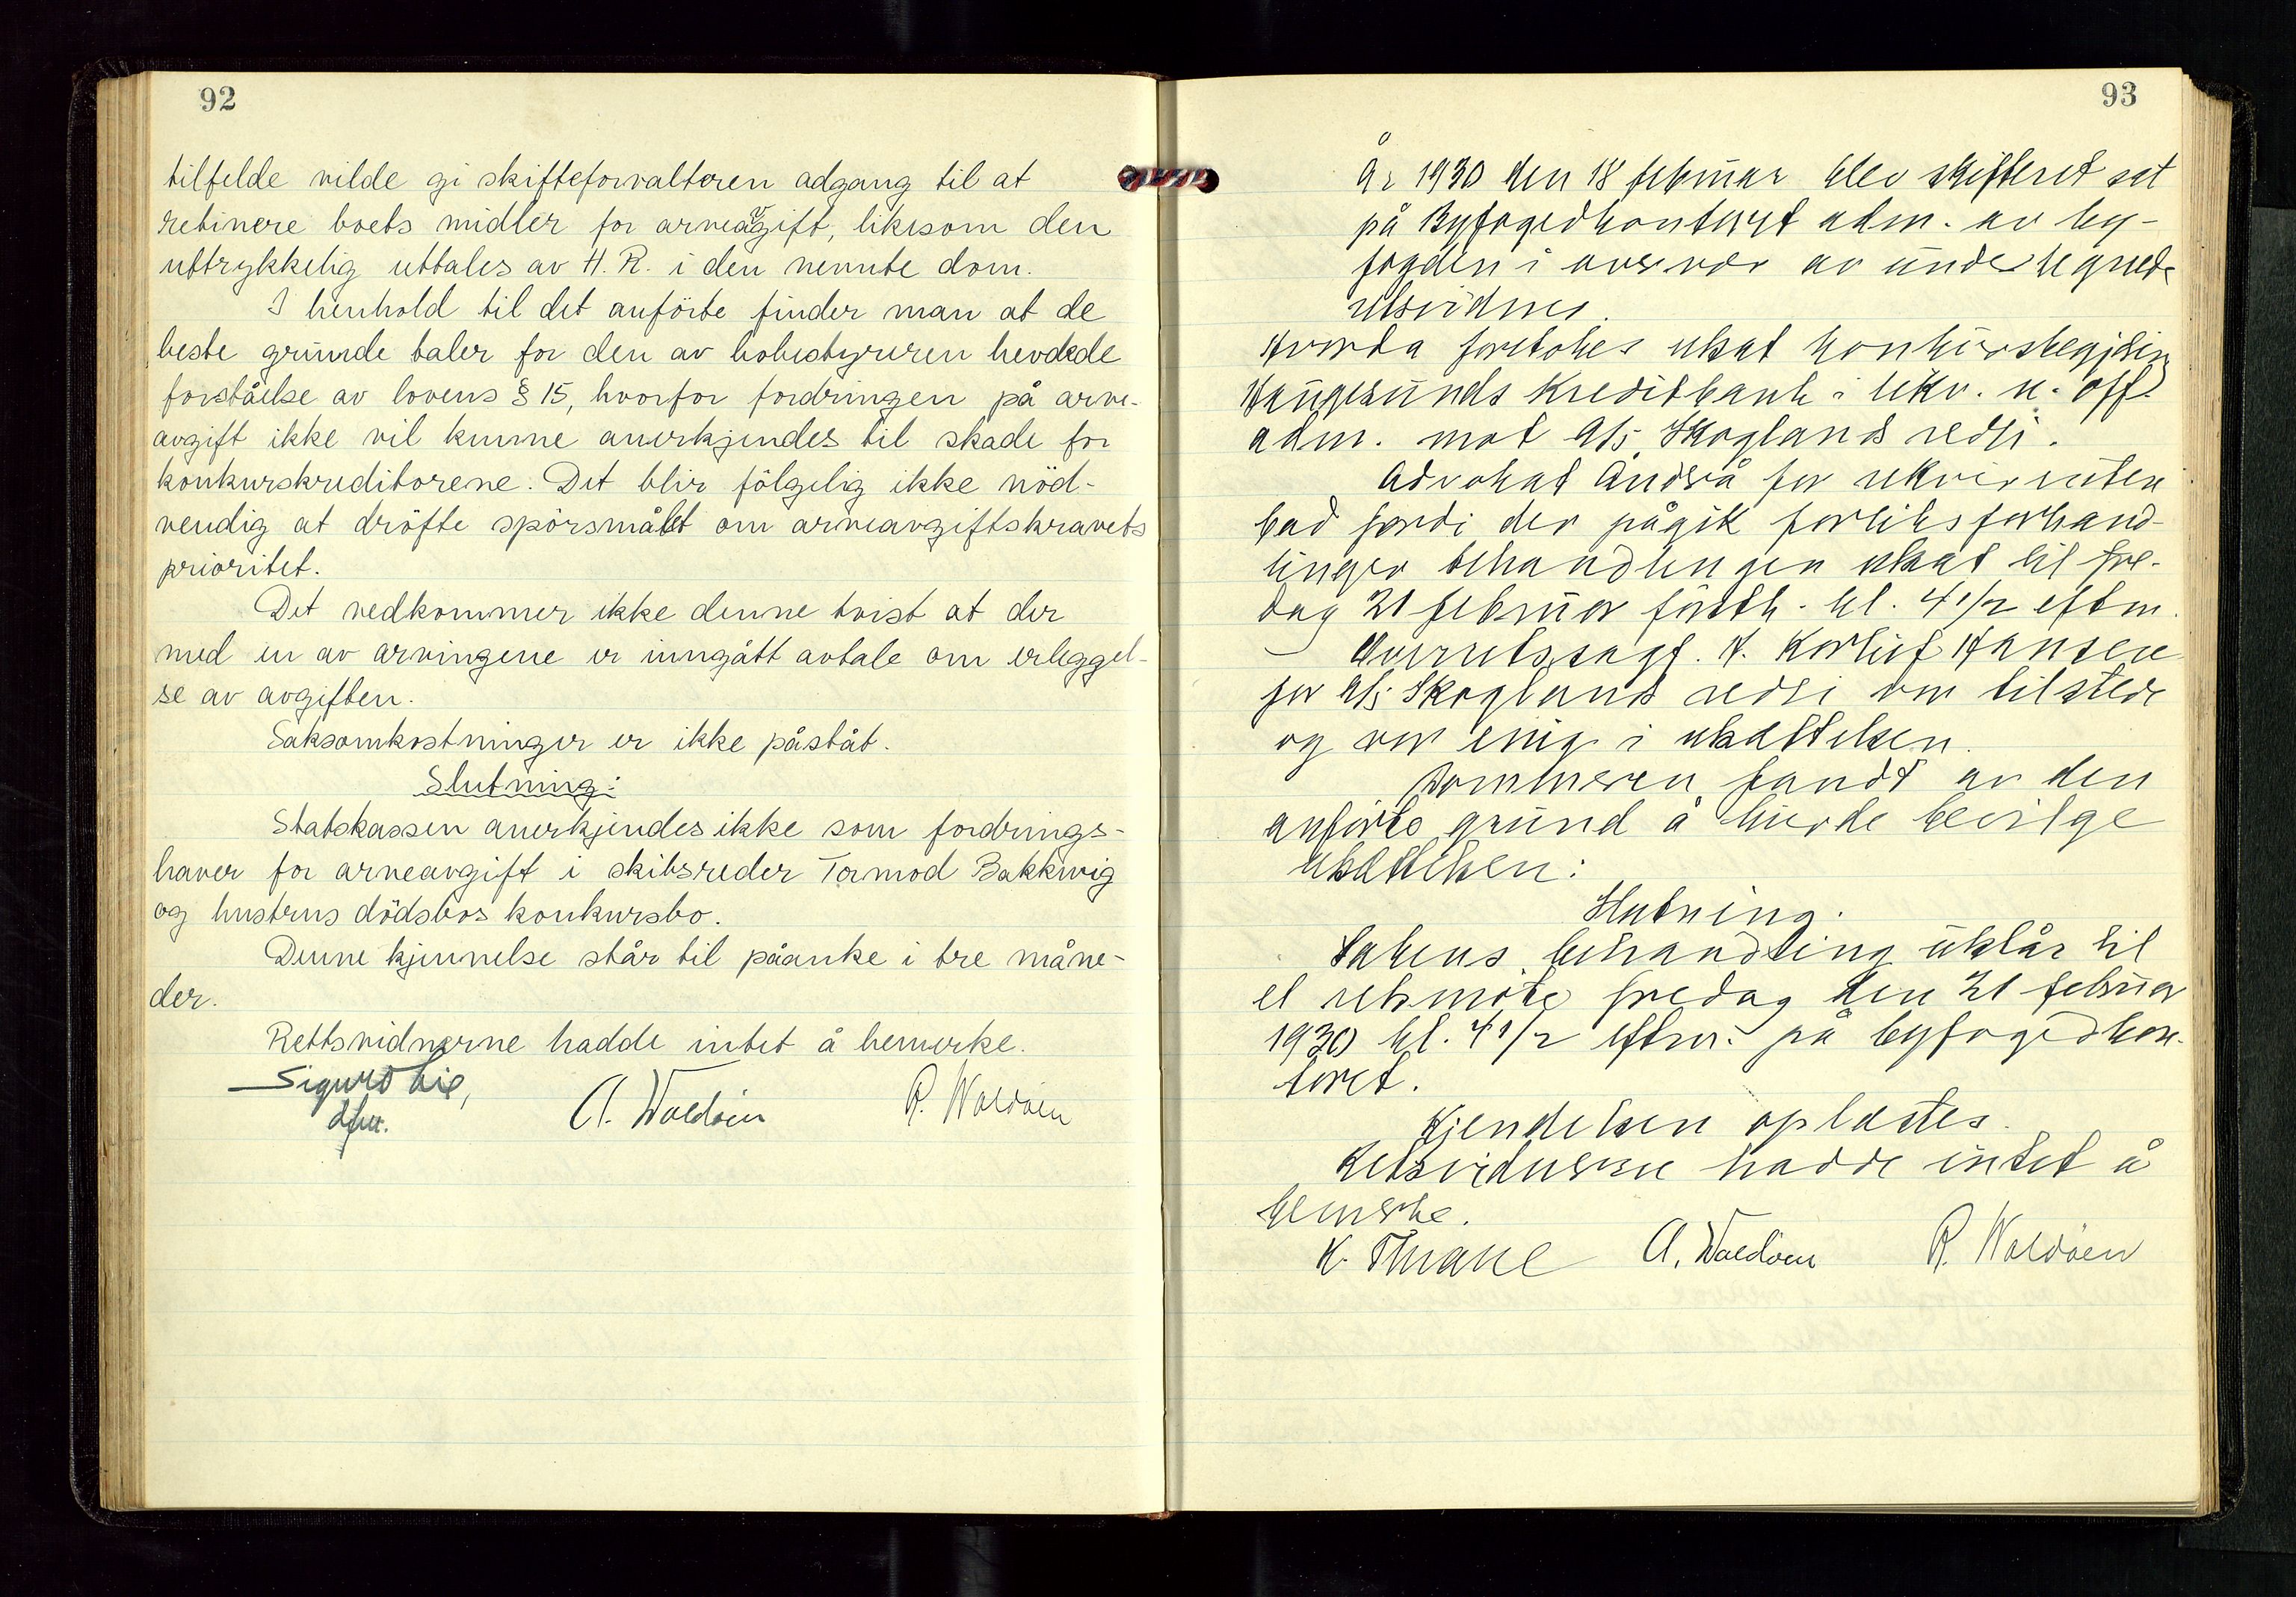 92
tilfelde vilde gi skifteforvalteren adgang til at
retinere boets midler for arveavgift, likesom den
uttrykkelig uttales av H. R. i den nevnte dom.
I henhold til det anförte finder man at de
beste grunde taler for den av bobestyreren hevdede
forståelse av lovens § 15, hvorfor fordringen på arve-
avgift ikke vil kunne anerkjendes til skade for
konkurskreditorene. Det blir fölgelig ikke nöd-
vendig at dröfte spörsmålet om arveavgiftskravets
prioritet.
Det vedkommer ikke denne tvist at der
med en av arvingene er inngått avtale om erleggel-
se av avgiften.
Saksomkostninger er ikke påståt.
Slutning:
Statskassen anerkjendes ikke som fordrings-
haver for arveavgift i skibsreder Tormod Bakkevig
og hustrus dödsbos konkursbo.
Denne kjennelse står til påanke i tre måne-
der.
Rettsvidnerne hadde intet å bemerke.
Sigurd Lie,
dfm.
A. Waldöen
R. Waldöen
93
År 1930 den 18 februar blev skifteret sat
på Byfogedkontoret adm. av by-
fogden i overvær av undertegnede
retsvidner.
Hvorda foretokes utsat konkursbegjæring
Haugesunds Kreditbank i likv. u. off.
adm. mot A/S Skoglands rederi.
Advokat Andrå for rekvirenten
bad fordi der pågik forliksforhand-
linger behandlingen utsat til fre-
dag 21 februar förstk. kl. 4 1/2 eftm.
Overretssagf. H. Hansen
for A/S Skoglands rederi var tilstede
og var enig i utsættelsen.
Dommeren fandt av den
anförte grund å burde bevilge
utsættelsen:
Slutning.
Sakens behandling utstår til
et retsmöte fredag den 21 februar
1930 kl. 4 1/2 eftm. på byfogedkon-
toret.
Kjendelsen oplæstes.
Retsvidnerne hadde intet å
bemerke.
K. Thrane
A. Waldöen
R. Waldöen